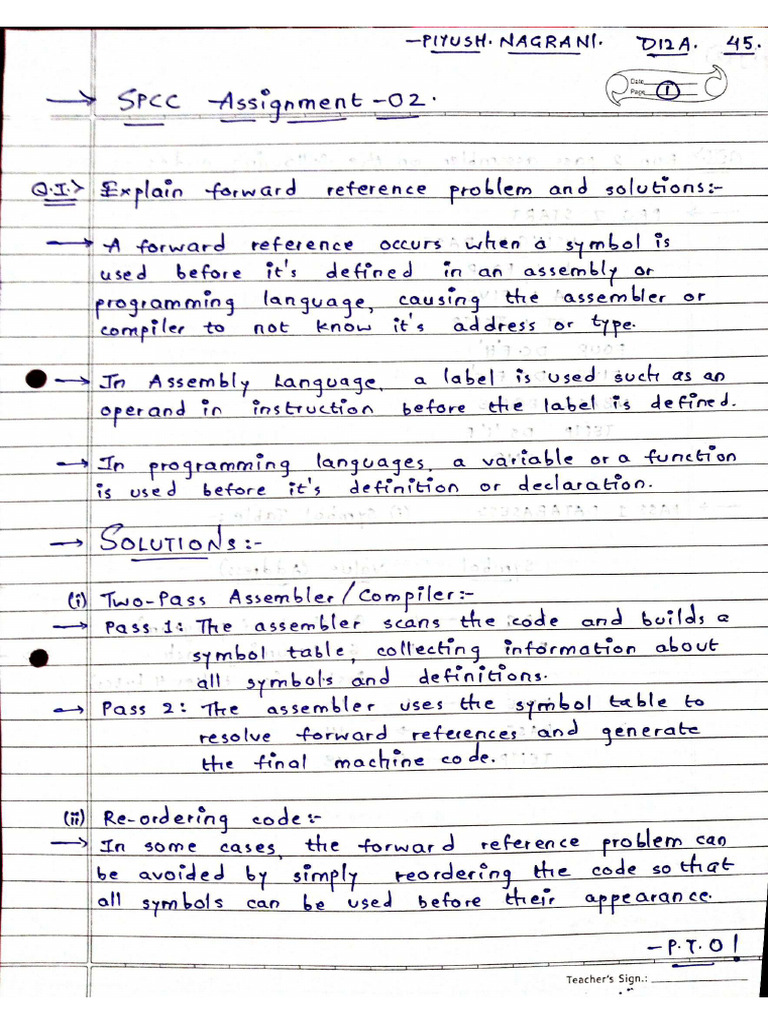 -PIYUSH. NAGRANI. D12A. 45.
Date
Page 1
→ SPCC Assignment-02.
Q.1.> Explain forward reference problem and solutions:-
→ A forward reference occurs when a symbol is
used before it's defined in an assembly or
programming language, causing the assembler or
compiler to not know it's address or type.
→ In Assembly Language, a label is used such as an
operand in instruction before the label is defined.
→ In programming languages, a variable or a function
is used before it's definition or declaration.
→ SOLUTIONS:-
(i) Two-Pass Assembler/Compiler:-
→ Pass 1: The assembler scans the code and builds a
symbol table, collecting information about
all symbols and definitions.
→ Pass 2: The assembler uses the symbol table to
resolve forward references and generate
the final machine code.
(ii) Re-ordering code:-
→ In some cases, the forward reference problem can
be avoided by simply reordering the code so that
all symbols can be used before their appearance.
-P.T.O!
Teacher's Sign.: